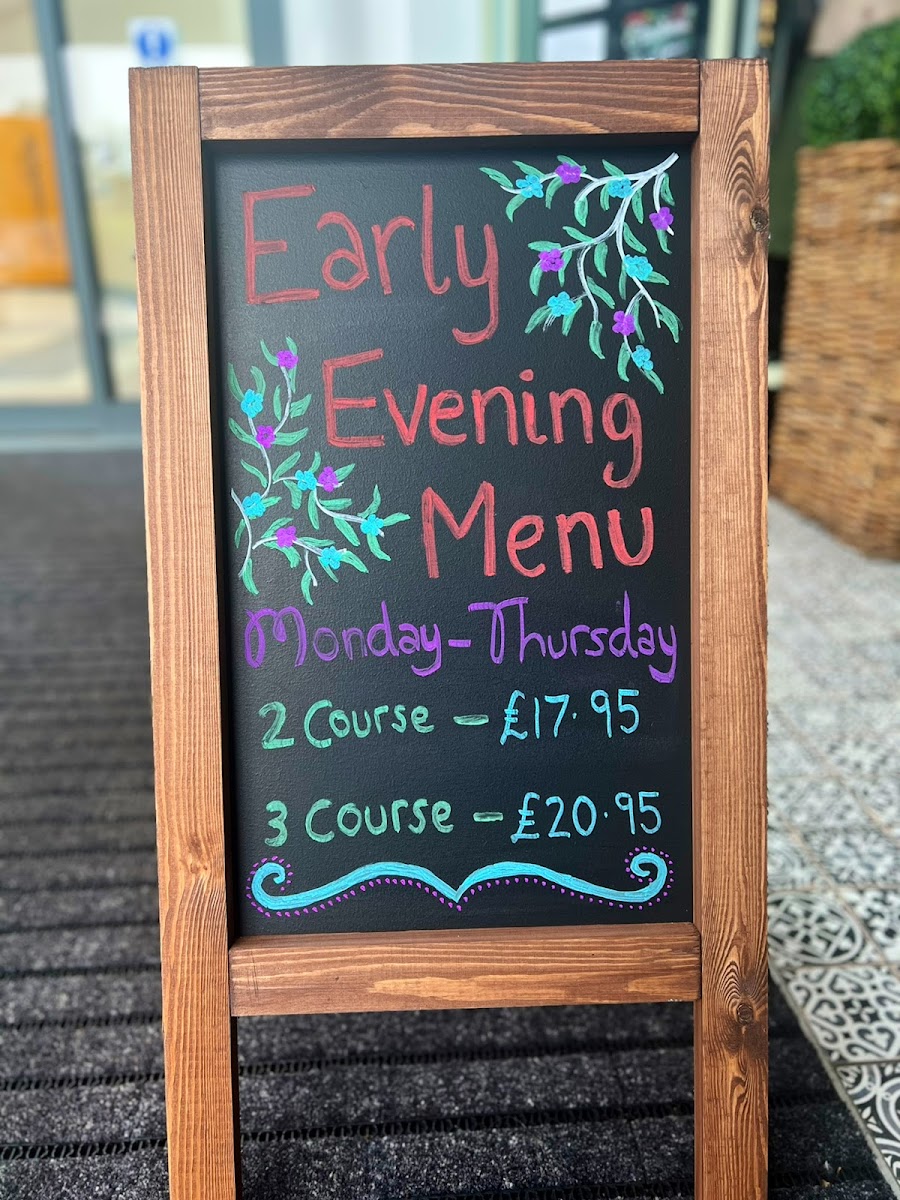 Early
Evening
Menu
Monday-Thursday
2 Course - £17.95
3 Course - £20.95